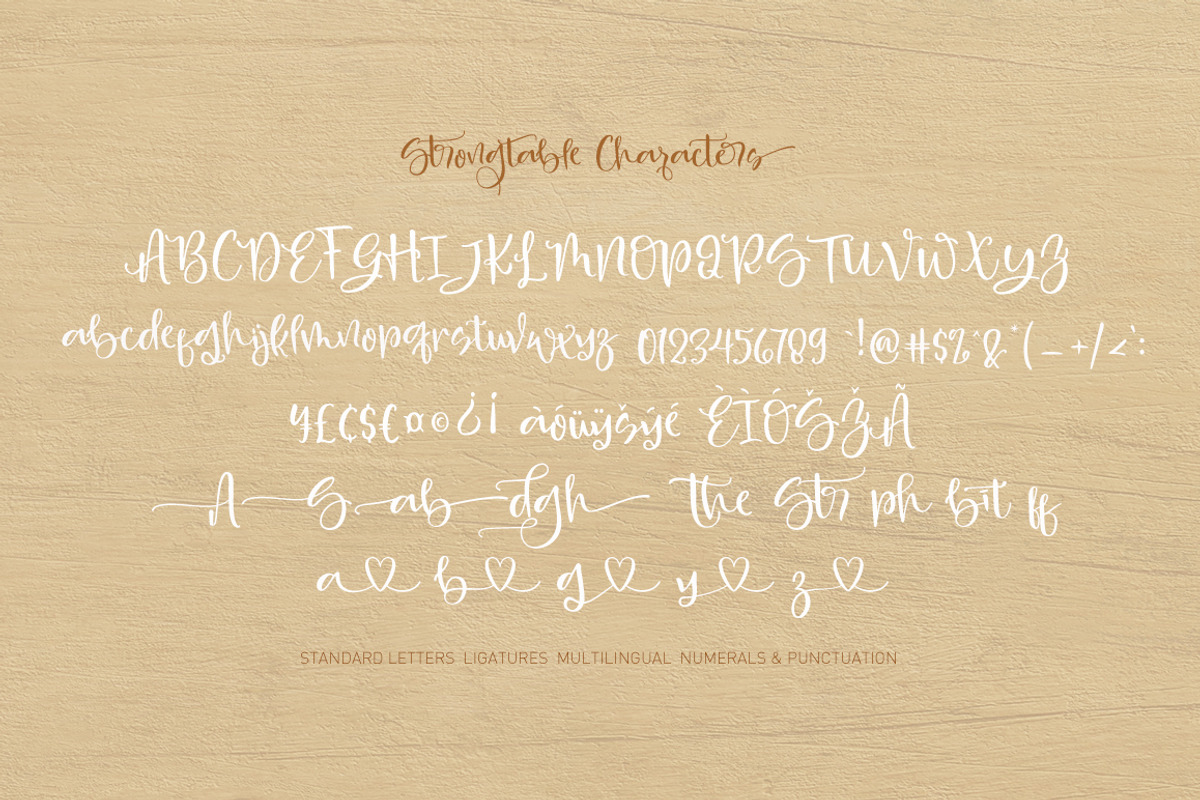 Strongtable Characters
ABCDEFGHIJKLMNOPQRSTUVWXYZ
abcdefghijklmnopqrstuvwxyz 0123456789 `!@#$%^&*(_-+/<`:
¥£¢$€¤©¿¡ àóüÿšýé ÈÌÓŠŽÃ
A S ab dgh the Str ph bit ff
a♡ b♡ g♡ y♡ z♡
STANDARD LETTERS LIGATURES MULTILINGUAL NUMERALS & PUNCTUATION